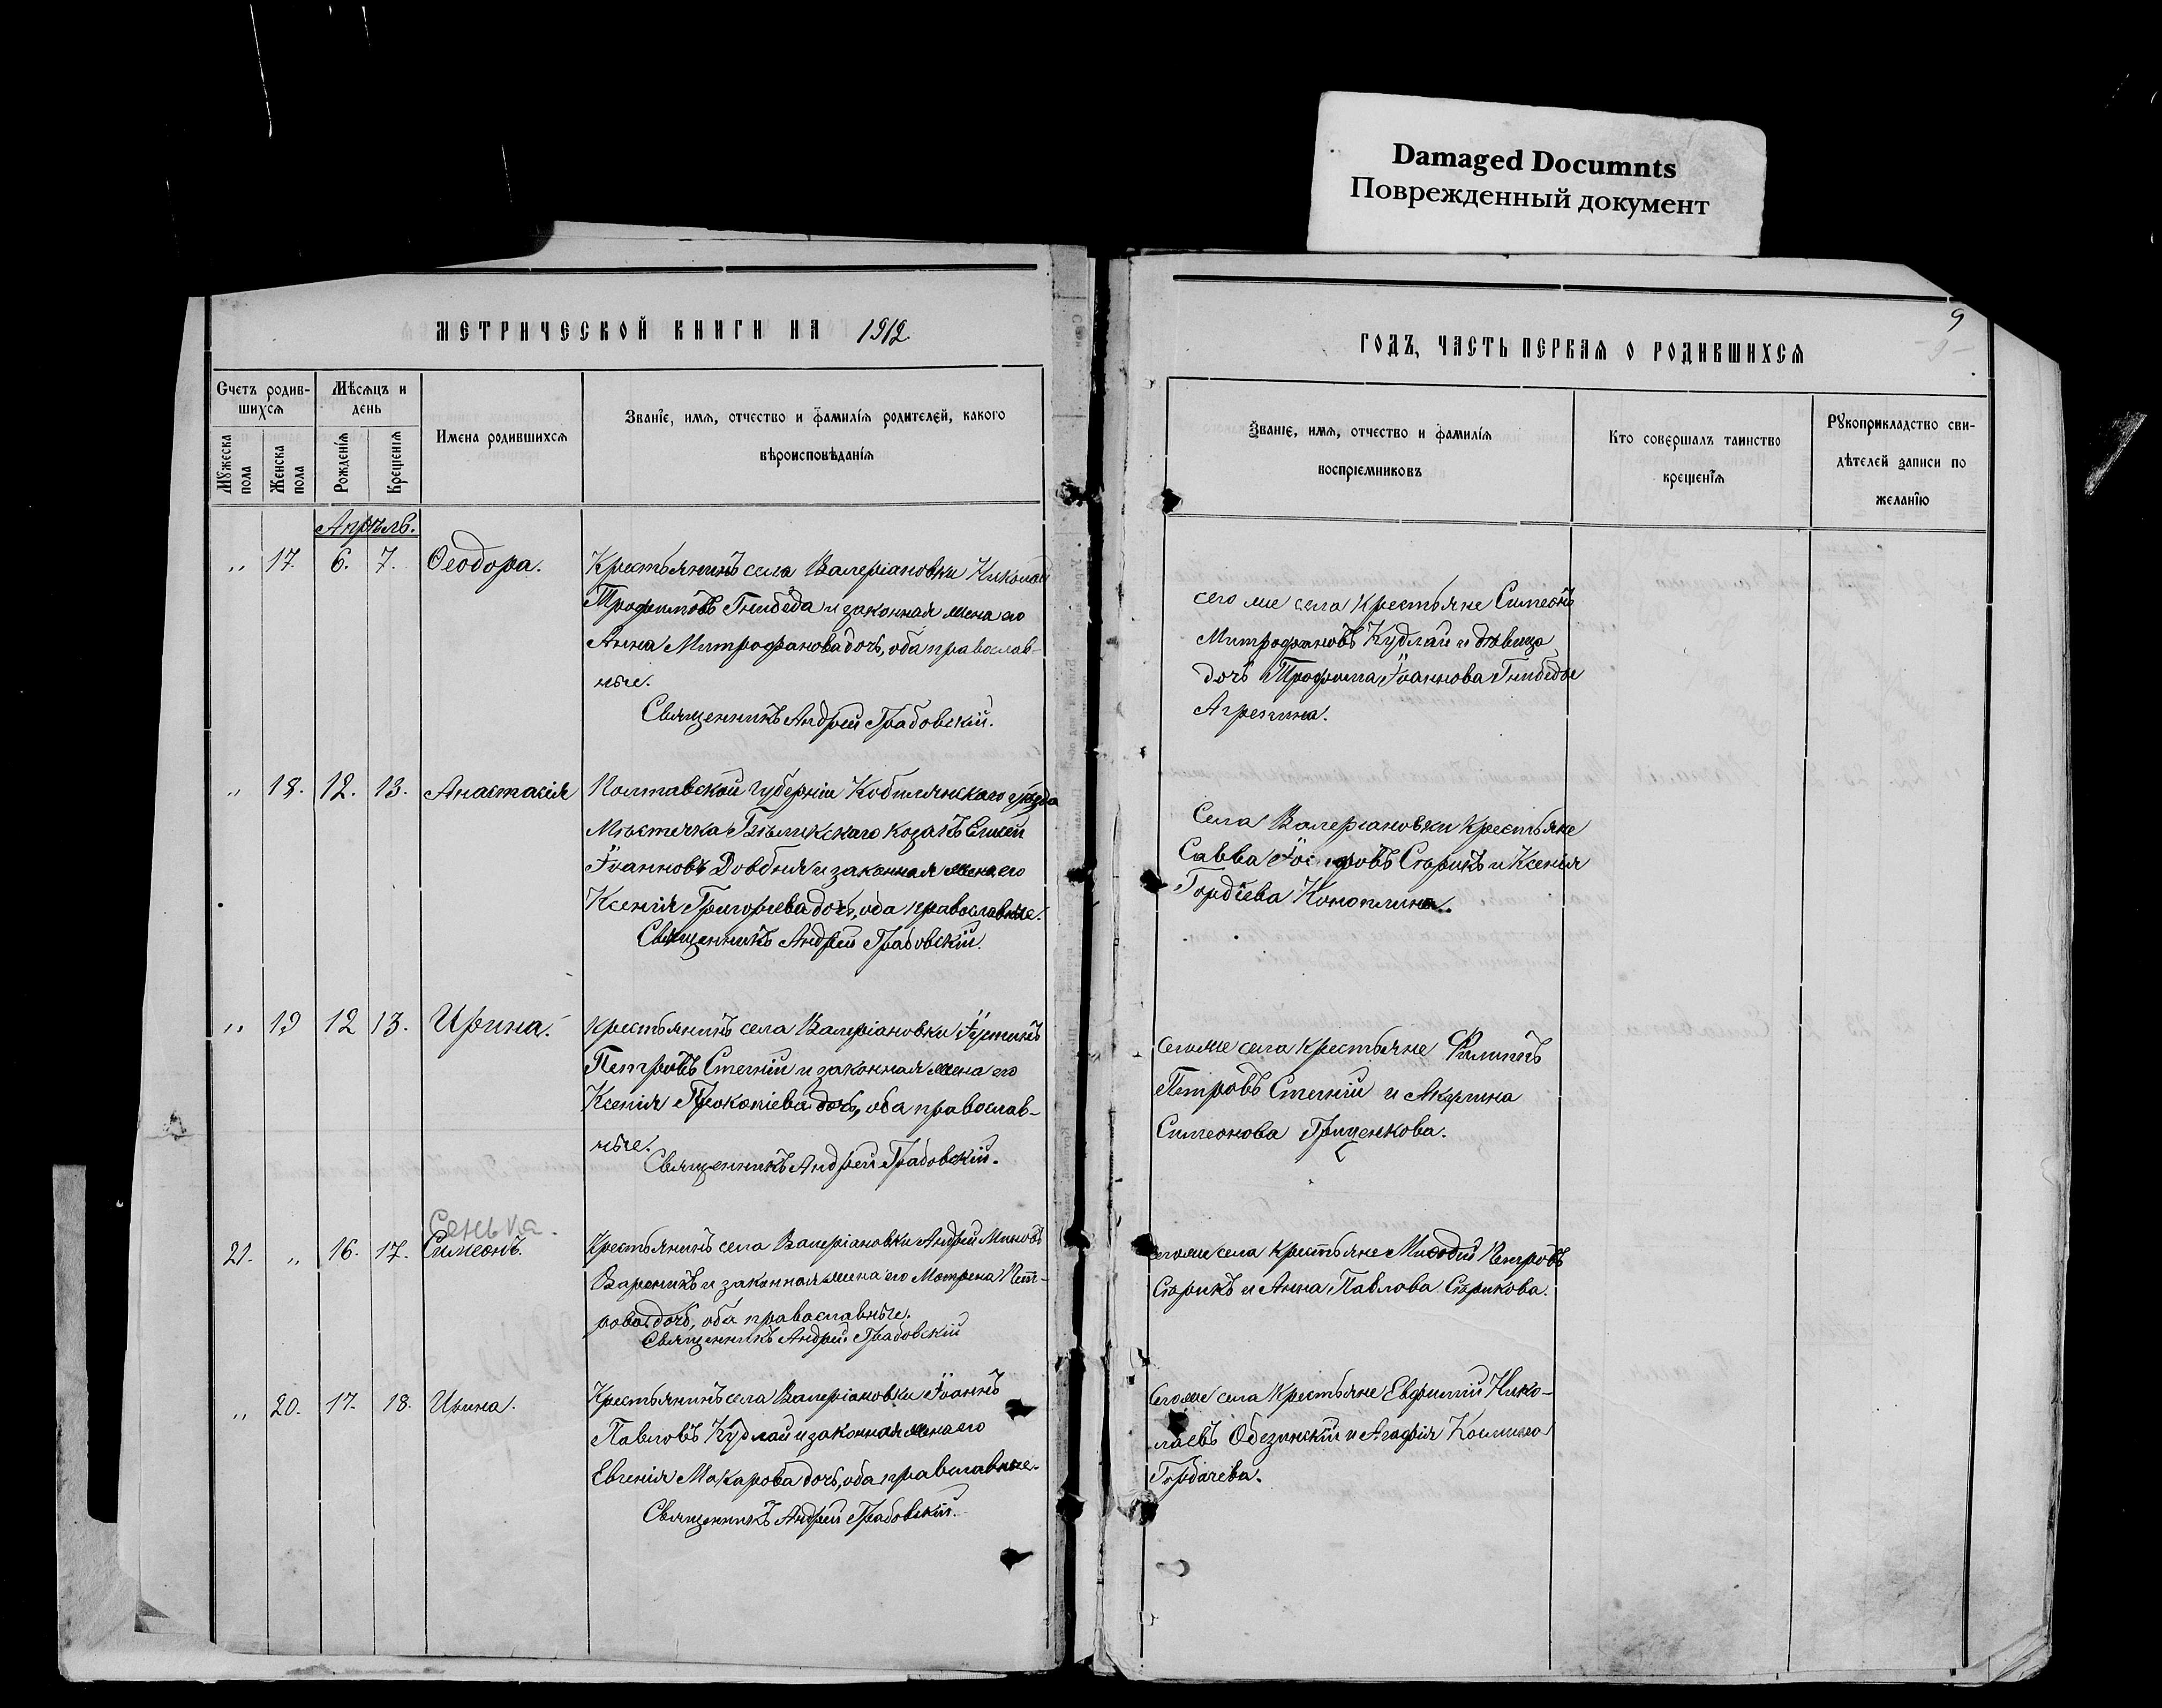 Damaged Documnts
Поврежденный документ
МЕТРИЧЕСКОЙ КНИГИ НА 1912
ГОДЪ, ЧАСТЬ ПЕРВАЯ О РОДИВШИХСЯ
9
Счетъ родив-
шихся
Мужеска пола
Женска пола
Мѣсяцъ и
день
Рожденія
Крещенія
Имена родившихся
Званіе, имя, отчество и фамилія родителей, какого
вѣроисповѣданія
Званіе, имя, отчество и фамилія
воспріемниковъ
Кто совершалъ таинство
крещенія
Рукоприкладство сви-
дѣтелей записи по
желанію
Апрѣль.
„ 17. 6. 7. Ѳеодора.
Крестьянинъ села Валеріановки Николай
Трофимовъ Гнибѣда и законная жена его
Анна Митрофанова дочь, оба православ-
ные.
Священникъ Андрей Грабовскій.
сего же села крестьяне Симеонъ
Митрофановъ Кудлай и дѣвица
дочь Трофима Іоаннова Гнибѣды
Агрепина.
„ 18. 12. 13. Анастасія
Полтавской губерніи Кобылянскаго уѣзда
Мѣстечка Бѣликскаго козакъ Елисей
Іоанновъ Довбня и законная жена его
Ксенія Григорьева дочь, оба православные.
Священникъ Андрей Грабовскій.
Села Валеріановки крестьяне
Савва Іосифовъ Старикъ и Ксенія
Гордѣева Коноплина.
„ 19 12 13. Ирина.
крестьянинъ села Валеріановки Іустинъ
Петровъ Степній и законная жена его
Ксенія Прокопіева дочь, оба православ-
ные.
Священникъ Андрей Грабовскій.
сегоже села крестьяне Филиппъ
Петровъ Степній и Акулина
Симеонова Гриценкова.
Сенька.
21. „ 16. 17. Симеонъ.
Крестьянинъ села Валеріановки Андрей Миновъ
Вареникъ и законная жена его Мотрена Пет-
рова дочь, оба православные.
Священникъ Андрей Грабовскій
сегоже села крестьяне Мефодій Петровъ
Старикъ и Анна Павлова Старикова.
„ 20. 17. 18. Ирина.
Крестьянинъ села Валеріановки Іоаннъ
Павловъ Кудлай и законная жена его
Евгенія Макарова дочь, оба православные.
Священникъ Андрей Грабовскій.
Сегоже села крестьяне Евфимій Нико-
лаевъ Обезинскій и Агафія
Горбачева.